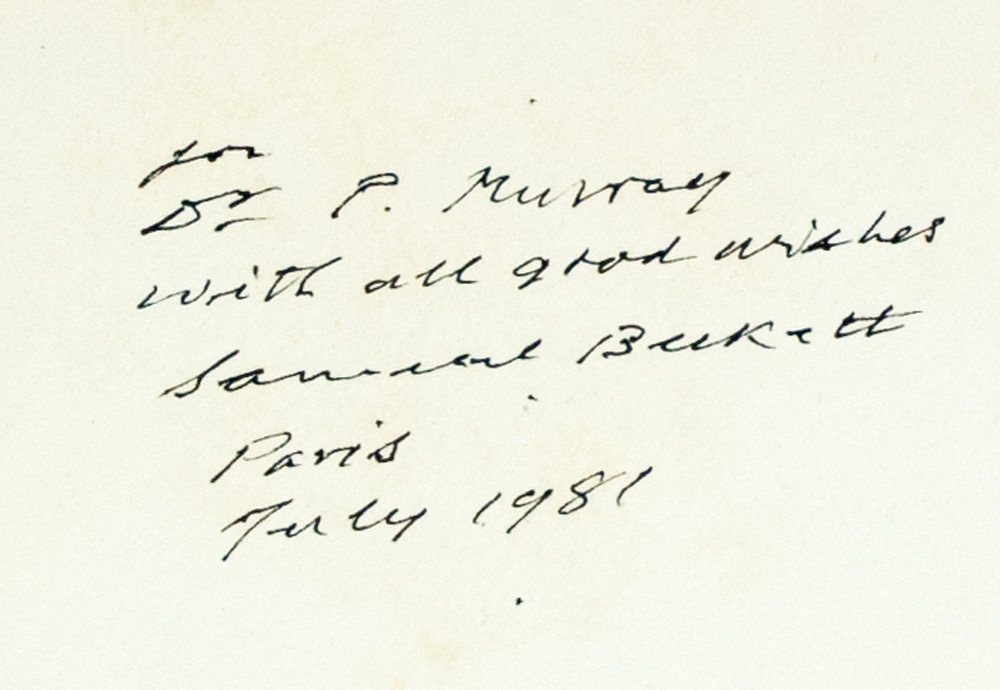 for
Dr P. Murray
with all good wishes
Samuel Beckett
Paris
July 1981